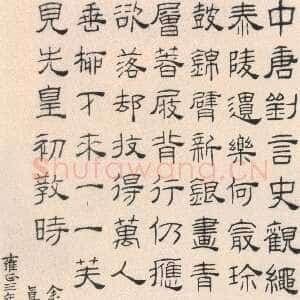 中唐劉言史觀繩
泰陵遺樂何㝡珍
鼓錦臂新銀畫青
層著屐背行仍應
欲落却收得萬人
垂柳下來一一芙
見先皇初教時
雍正三年
Shufawang.CN